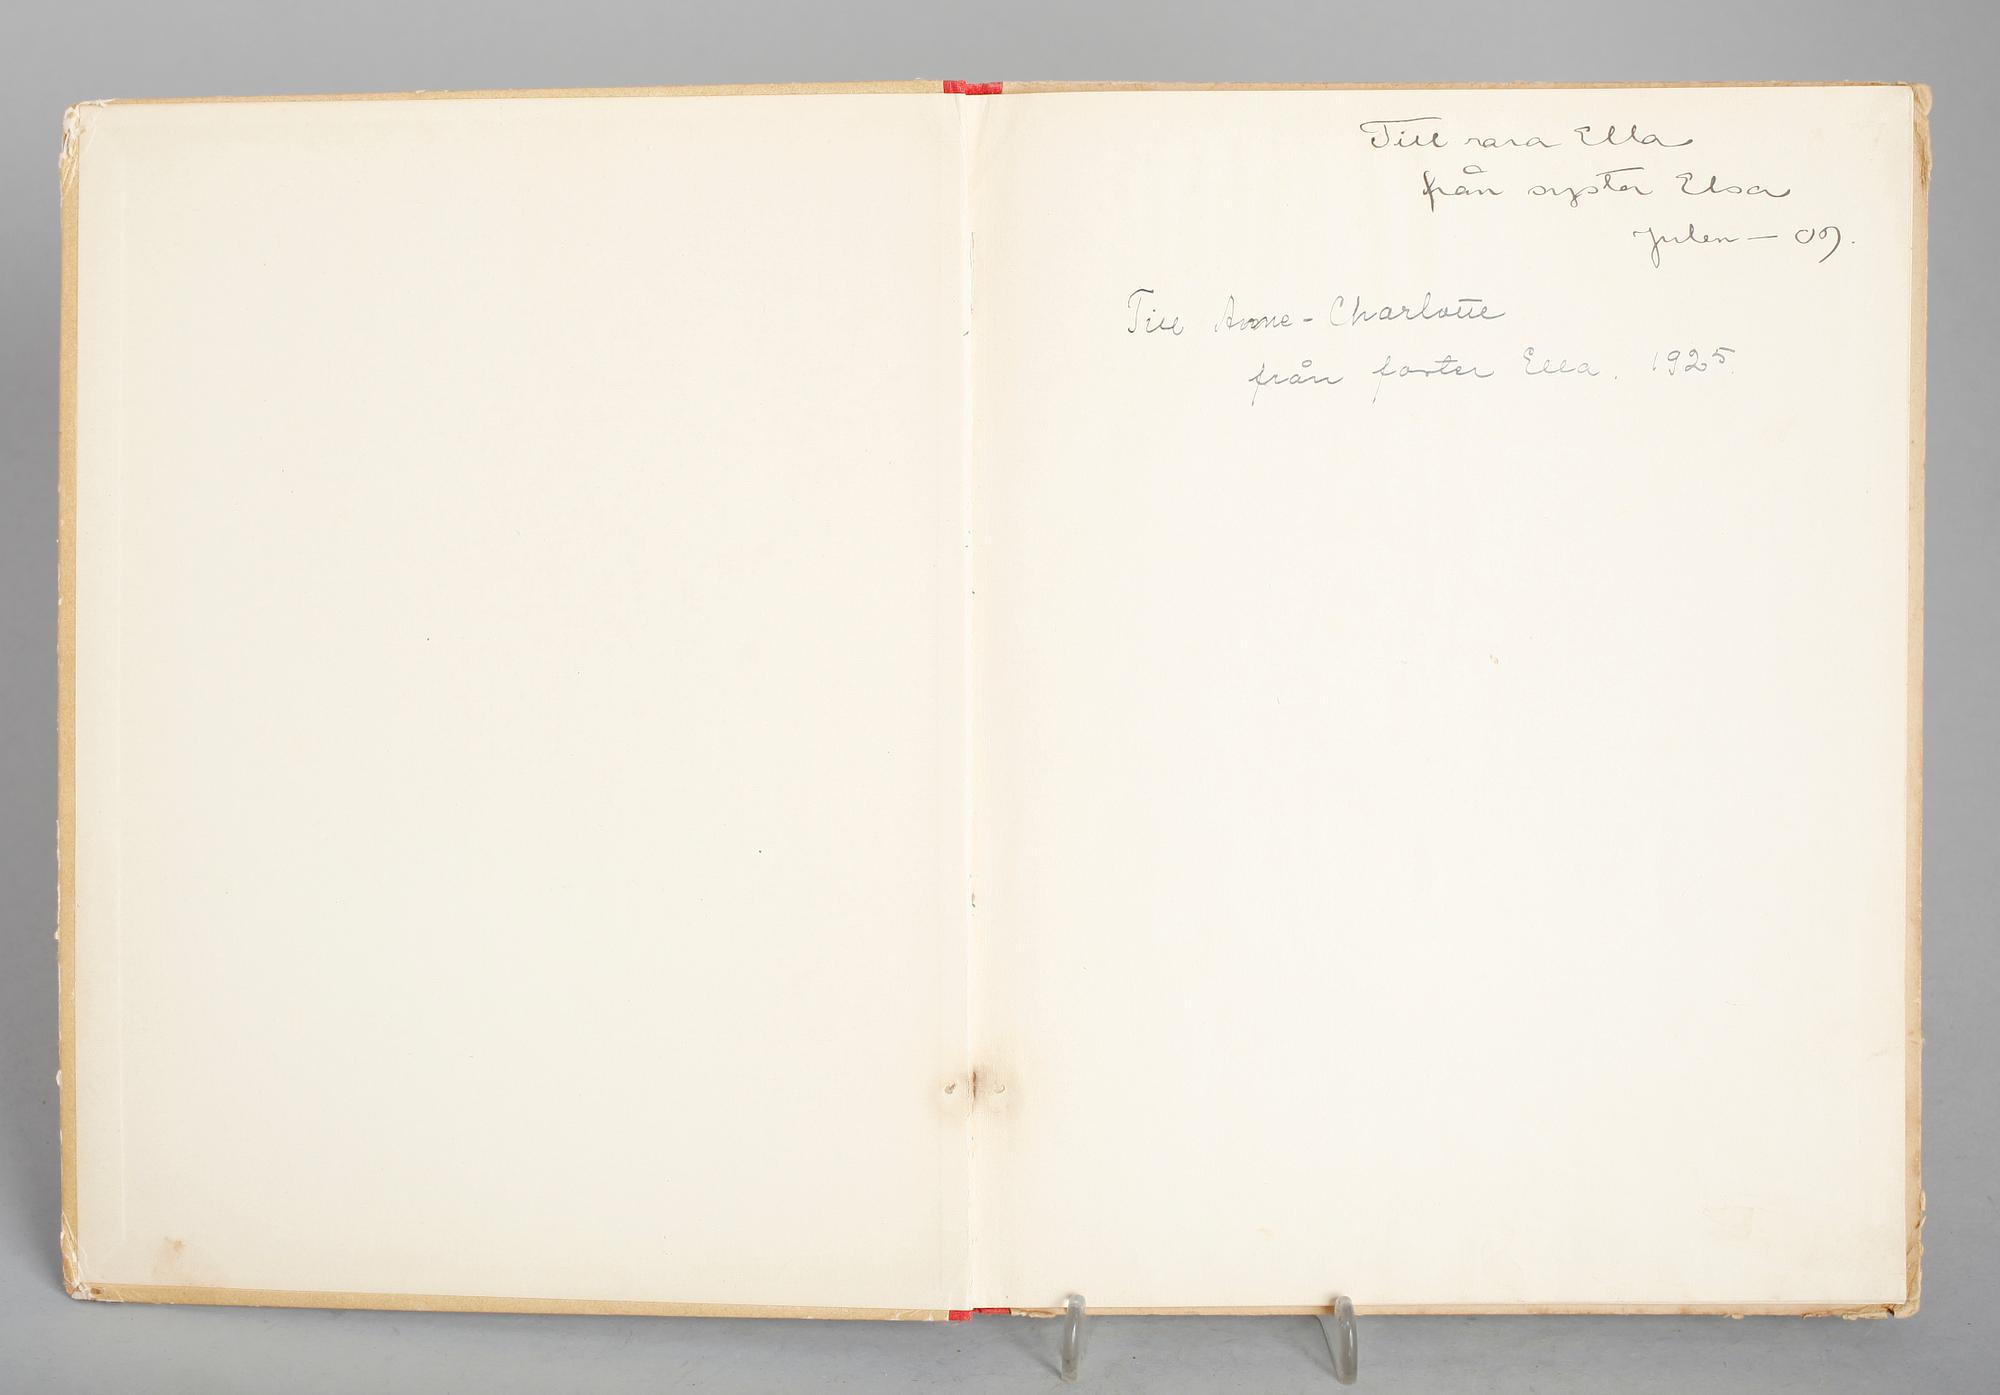 Till rara Ella
från syster Elsa
Julen — 09.
Till Anne-Charlotte
från faster Ella. 1925.